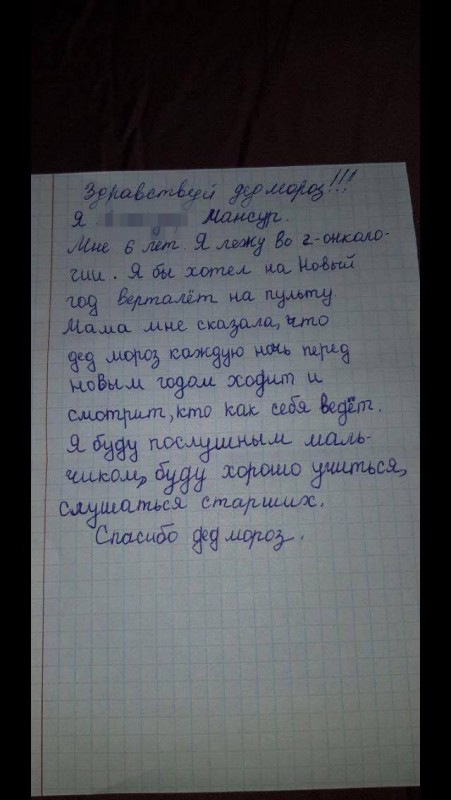 Здравствуй дед мороз!!!
Я Мансур.
Мне 6 лет. Я лежу во 2-онколо-
гии. Я бы хотел на Новый
год верталёт на пульту.
Мама мне сказала, что
дед мороз каждую ночь перед
новым годом ходит и
смотрит, кто как себя ведёт.
Я буду послушным маль-
чиком, буду хорошо учиться,
слушаться старших.
Спасибо дед мороз.